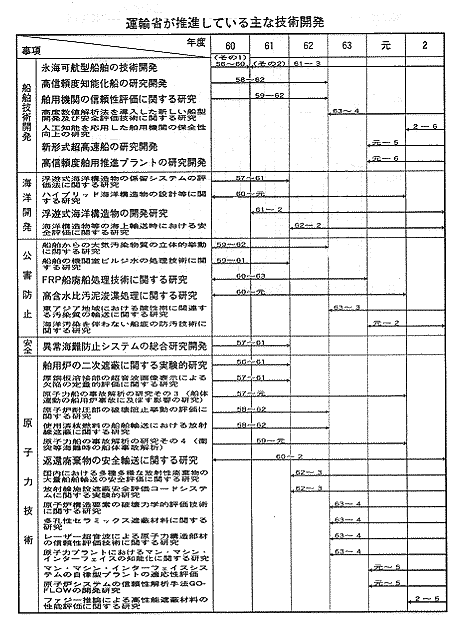 運輸省が推進している主な技術開発
年度
事項
60 61 62 63 元 2
船舶技術開発
氷海可航型船舶の技術開発 (その1) 56〜60 (その2) 61〜3
高信頼度知能化船の研究開発 58〜62
舶用機関の信頼性評価に関する研究 59〜62
高度数値解析法を導入した新しい船型
開発及び安全評価技術に関する研究 63〜4
人工知能を応用した舶用機関の保全性
向上の研究 2〜6
新形式超高速船の研究開発 元〜5
高信頼度舶用推進プラントの研究開発 元〜6
海洋開発
浮遊式海洋構造物の係留システムの評
価法に関する研究 57〜61
ハイブリッド海洋構造物の設計等に関
する研究 60〜元
浮遊式海洋構造物の開発研究 61〜2
海洋構造物等の海上輸送時における安
全評価に関する研究 62〜2
公害防止
船舶からの大気汚染物質の立体的挙動
に関する研究 59〜62
船舶の機関室ビルジ水の処理技術に関
する研究 59〜61
FRP船廃船処理技術に関する研究 60〜63
高含水比汚泥浚渫処理に関する研究 60〜元
東アジア地域における酸性雨に関連す
る汚染質の輸送に関する研究 63〜3
海洋汚染を伴わない船底の防汚技術に
関する研究 元〜2
安全
異常海難防止システムの総合研究開発 57〜61
原子力技術
舶用炉の二次遮蔽に関する実験的研究 56〜61
厚鋼板溶接部の超音波画像表示による
欠陥の定量的評価に関する研究 57〜61
原子力船の事故解析の研究その3(船体
運動の舶用炉事故に及ぼす影響の研究) 57〜元
原子炉耐圧部の破壊阻止挙動の評価に
関する研究 58〜62
使用済核燃料の船舶輸送における放射
線遮蔽に関する研究 58〜62
原子力船の事故解析の研究その4(衝
突等海難時の船体事故解析) 59〜元
返還廃棄物の安全輸送に関する研究 60〜2
国内における多種多様な放射性廃棄物の
大量船舶輸送の安全評価に関する研究 62〜3
放射線施設遮蔽安全評価コードシステ
ムに関する実験的研究 62〜3
原子炉構造要素の破壊力学的評価技術
に関する研究 63〜4
多孔性セラミックス遮蔽材料に関する
研究 63〜4
レーザー超音波による原子力構造部材
の信頼性評価技術に関する研究 63〜4
原子力プラントにおけるマン・マシン・
インターフェイスの知能化に関する研究 63〜4
マン・マシン・インターフェイスシス
テムの自律型プラントの適応性評価 元〜5
原子炉システムの信頼性解析手法GO-
FLOWの開発研究 元〜5
ファジー推論による高性能遮蔽材料の
性能評価に関する研究 2〜5